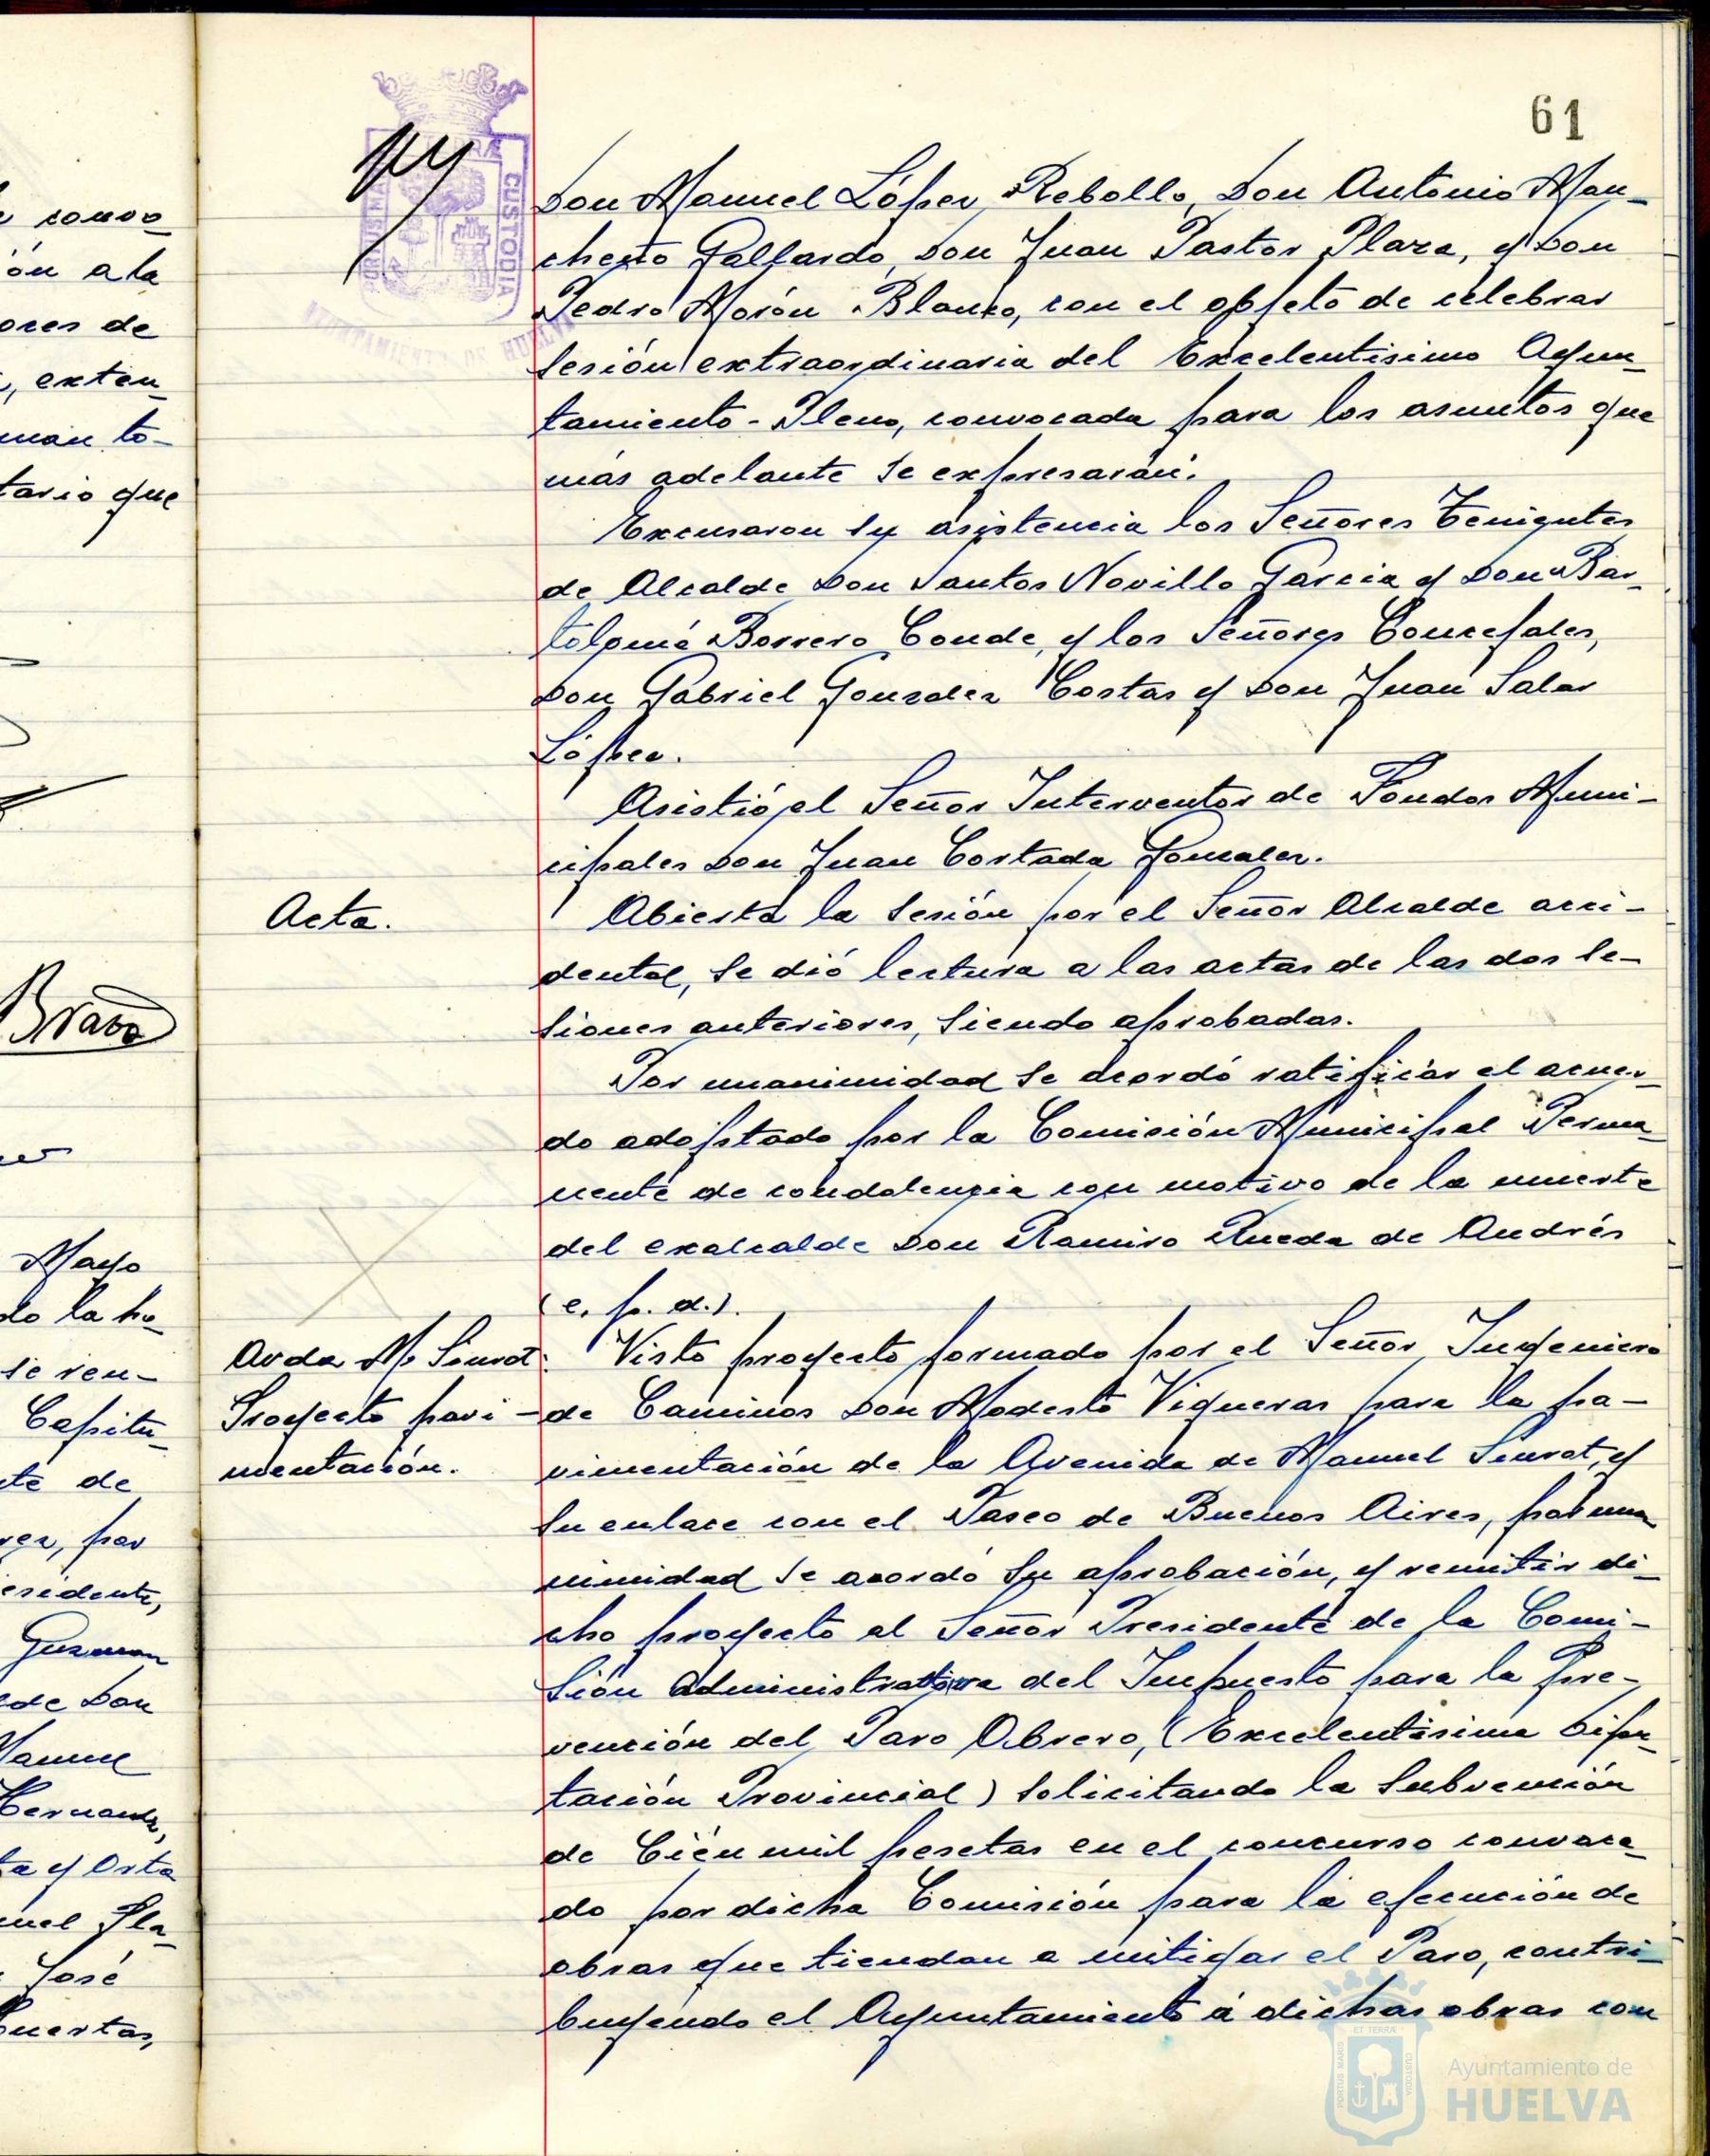 61
Don Manuel López Rebollo, Don Antonio Man-
cheño Gallardo, Don Juan Pastor Plaza, y Don
Pedro Morón Blanco, con el objeto de celebrar
Sesión extraordinaria del Excelentisimo Ayun-
tamiento-Pleno, convocada para los asuntos que
más adelante se expresarán.
Excusaron su asistencia los Señores Tenientes
de Alcalde Don Santos Novillo Garcia y Don Bar-
tolomé Borrero Conde, y los Señores Concejales,
Don Gabriel Gonzalez Costas y Don Juan Salas
López.
Asistió el Señor Interventor de Fondos Muni-
cipales Don Juan Cortada Gonzalez.
Acta.
Abierta la Sesión por el Señor Alcalde acci-
dental, se dió lectura a las actas de las dos Se-
siones anteriores, siendo aprobadas.
Por unanimidad se acordó ratificar el acuer-
do adoptado por la Comisión Municipal Perma-
nente de condolencia con motivo de la muerte
del exalcalde Don Ramiro Rueda de Andrés
(e. p. d.).
Avda M. Siurot:
Proyecto pavi-
mentación.
Visto proyecto formado por el Señor Ingeniero
de Caminos Don Modesto Vigueras para la pa-
vimentación de la Avenida de Manuel Siurot, y
su enlace con el Paseo de Buenos Aires, por una
nimidad se acordó su aprobación, y remitir di-
cho proyecto al Señor Presidente de la Comi-
sión administrativa del Impuesto para la pre-
vención del Paro Obrero, (Excelentisima Dipu-
tación Provincial) solicitando la Subvención
de Cién mil pesetas en el concurso convoca-
do por dicha Comisión para la ejecución de
obras que tiendan a mitigar el Paro, contri-
buyendo el Ayuntamiento á dichas obras con
ón a la
ores de
, exten-
man to-
tario que
Bravo
Mayo
do la ho-
se reu-
Capitu-
te de
por
esidente,
Guzman
lde Don
Manuel
Hernandz,
ta y Orta
nuel Pla-
José
uertas,
PORTUS MARIS
CUSTODIA
AYUNTAMIENTO DE HUELVA
PORTUS MARIS
ET TERRÆ
CUSTODIA
Ayuntamiento de
HUELVA